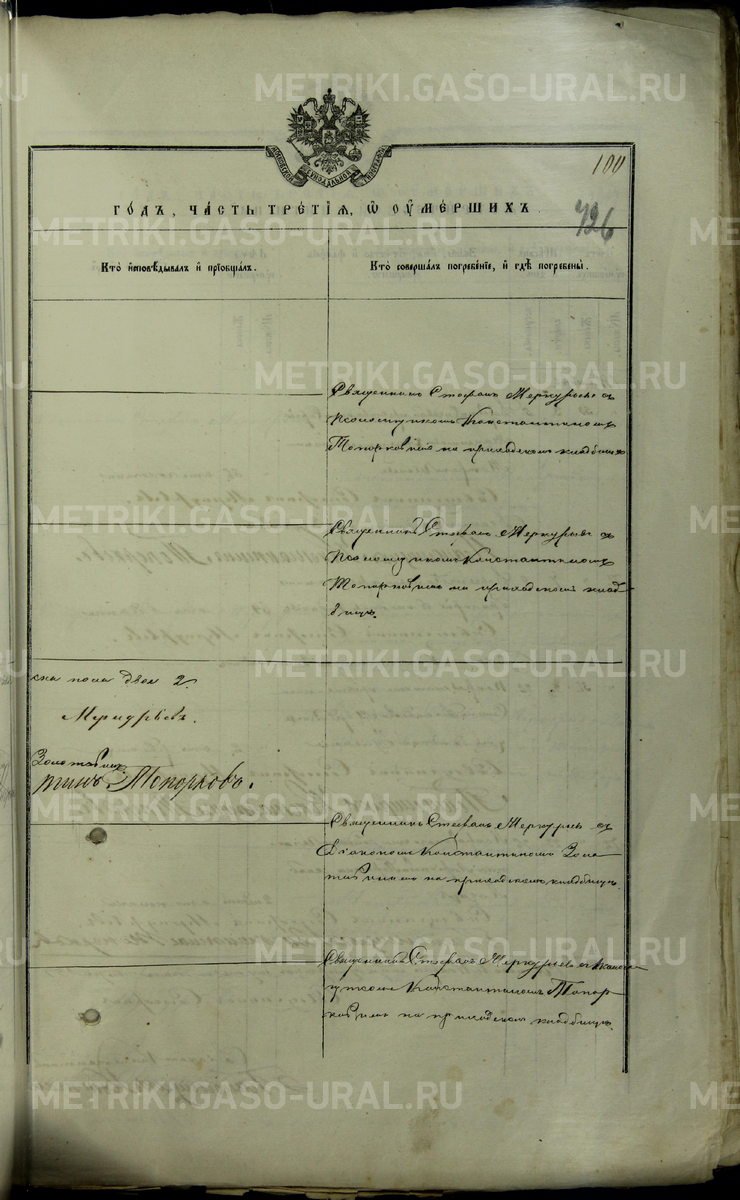 100
ГОДЪ, ЧАСТЬ ТРЕТІЯ, Ѡ ОУМЕРШИХЪ.
726
Кто исповѣдывалъ и пріобщалъ.
Кто совершалъ погребеніе, и гдѣ погребены.
Священникъ Стефанъ Меркурьевъ съ
псаломщикомъ Константиномъ
Топорковымъ на приходскомъ кладбищѣ
Священникъ Стефанъ Меркурьевъ съ
псаломщикомъ Константиномъ
Топорковымъ на приходскомъ клад-
бищѣ.
ска пола двое 2.
Меркурьевъ.
Золотавинъ
тинъ Топорковъ.
Священникъ Стефанъ Меркурьевъ съ
Діакономъ Константиномъ Золо-
тавинымъ на приходскомъ кладбищѣ.
Священникъ Стефанъ Меркурьевъ
Константиномъ Топор-
ковымъ на приходскомъ кладбищѣ.
METRIKI.GASO-URAL.RU